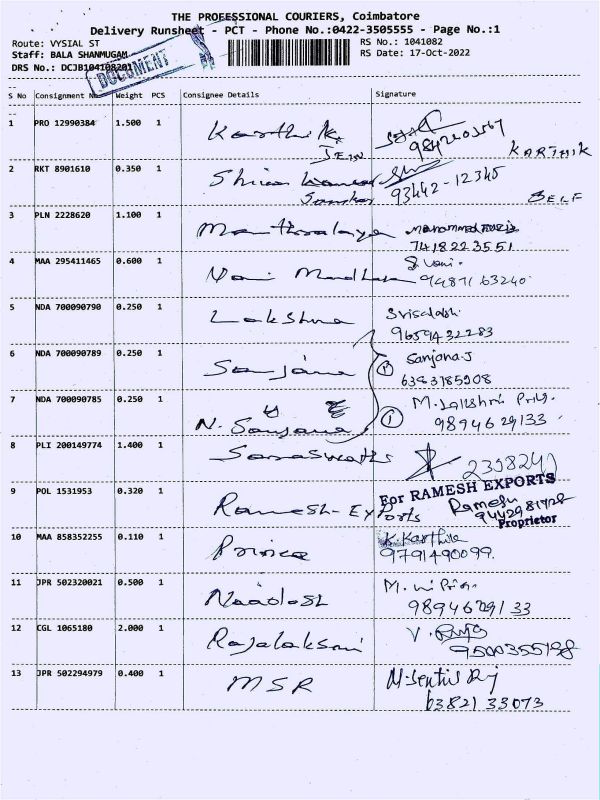 THE PROFESSIONAL COURIERS, Coimbatore
Delivery Runsheet - PCT - Phone No.:0422-3505555 - Page No.:1
Route: VYSIAL ST
RS No.: 1041082
Staff: BALA SHANMUGAM
RS Date: 17-Oct-2022
DRS No.: DCJB104108201
DOCUMENT
S No Consignment No Weight PCS Consignee Details Signature
1 PRO 12990384 1.500 1 Karthik
JEIN KARTHIK
2 RKT 8901610 0.350 1 Shiva
Sankar 93442-12345 SELF
3 PLN 2228620 1.100 1 Manthralaya Mohammed
7418223551
4 MAA 295411465 0.600 1 Vani S. Vani.
9487163240
5 NDA 700090790 0.250 1
9659432283
6 NDA 700090789 0.250 1 Sanjana Sanjana.S
6383185908
7 NDA 700090785 0.250 1 N. Sanjana M.
9894629133
8 PLI 200149774 1.400 1 Saraswathi
9 POL 1531953 0.320 1 Ramesh-Exports For RAMESH EXPORTS
Ramesh
Proprietor
10 MAA 858352255 0.110 1 Prince K.Karthika
9791490099.
11 JPR 502320021 0.500 1
9894629133
12 CGL 1065180 2.000 1 Rajalaksmi V.
9500355198
13 JPR 502294979 0.400 1 MSR
63821 33073